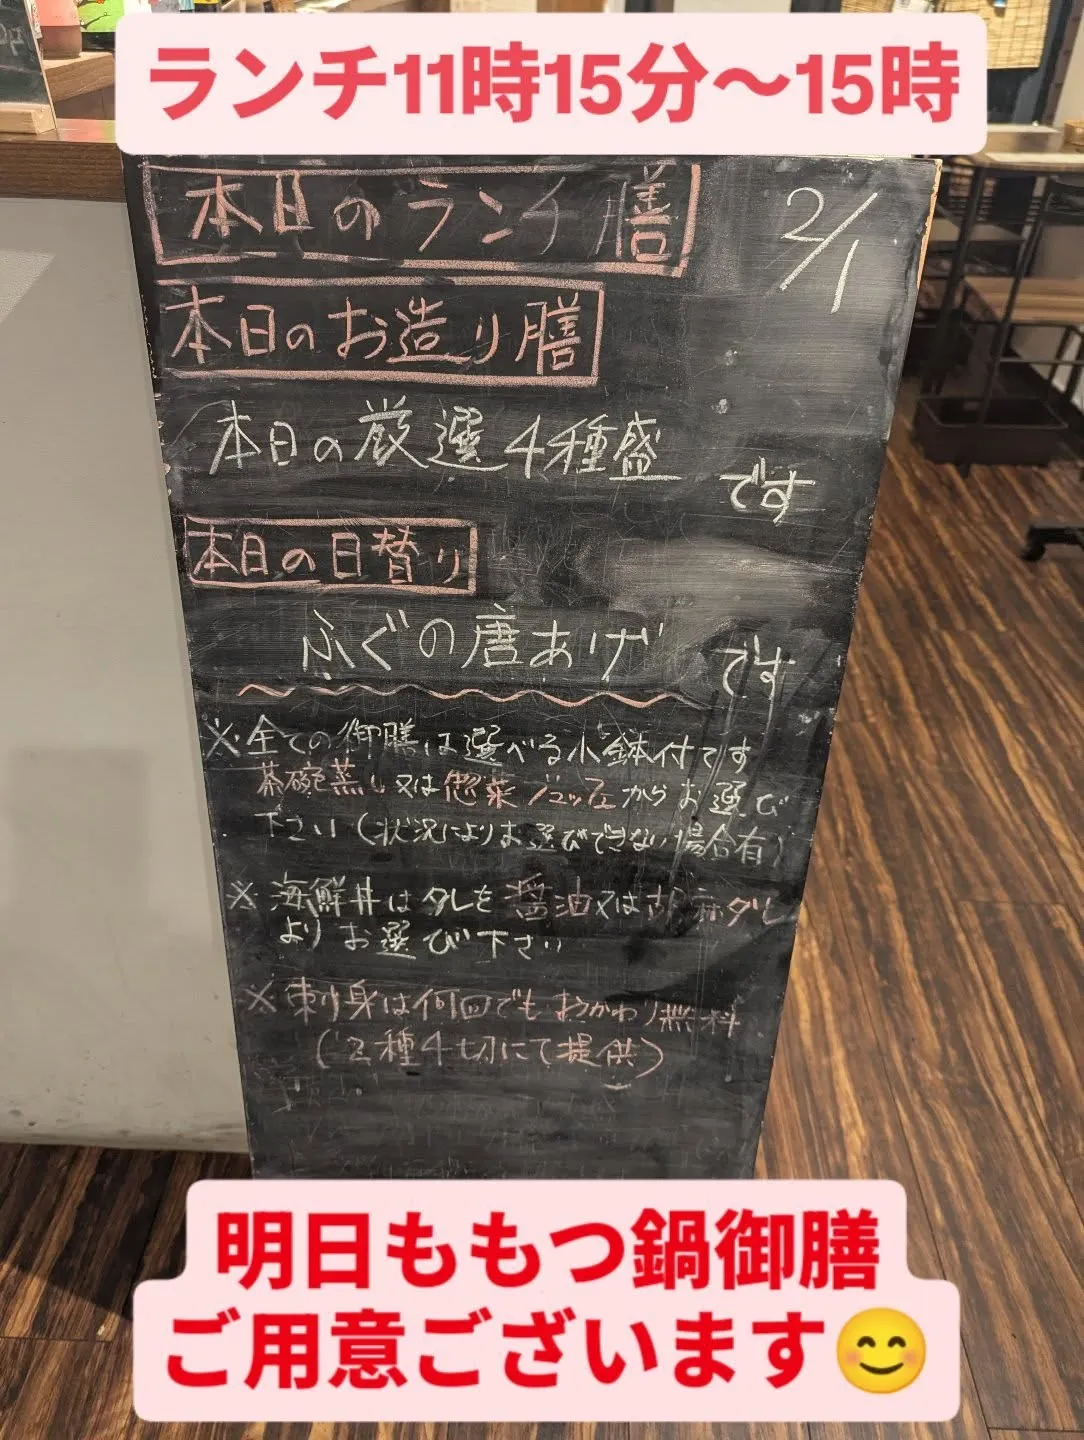 ランチ11時15分～15時
本日のランチ膳
2/1
本日のお造り膳
本日の厳選4種盛
です
本日の日替り
ふぐの唐あげ
です
※全ての御膳は選べる小鉢付です
茶碗蒸し又は惣菜ビュッフェからお選び
下さい(状況によりお選びできない場合有)
※海鮮丼はタレを醤油又は胡麻ダレ
よりお選び下さい
※刺身は何回でもおかわり無料
(2種4切にて提供)
明日ももつ鍋御膳
ご用意ございます😊